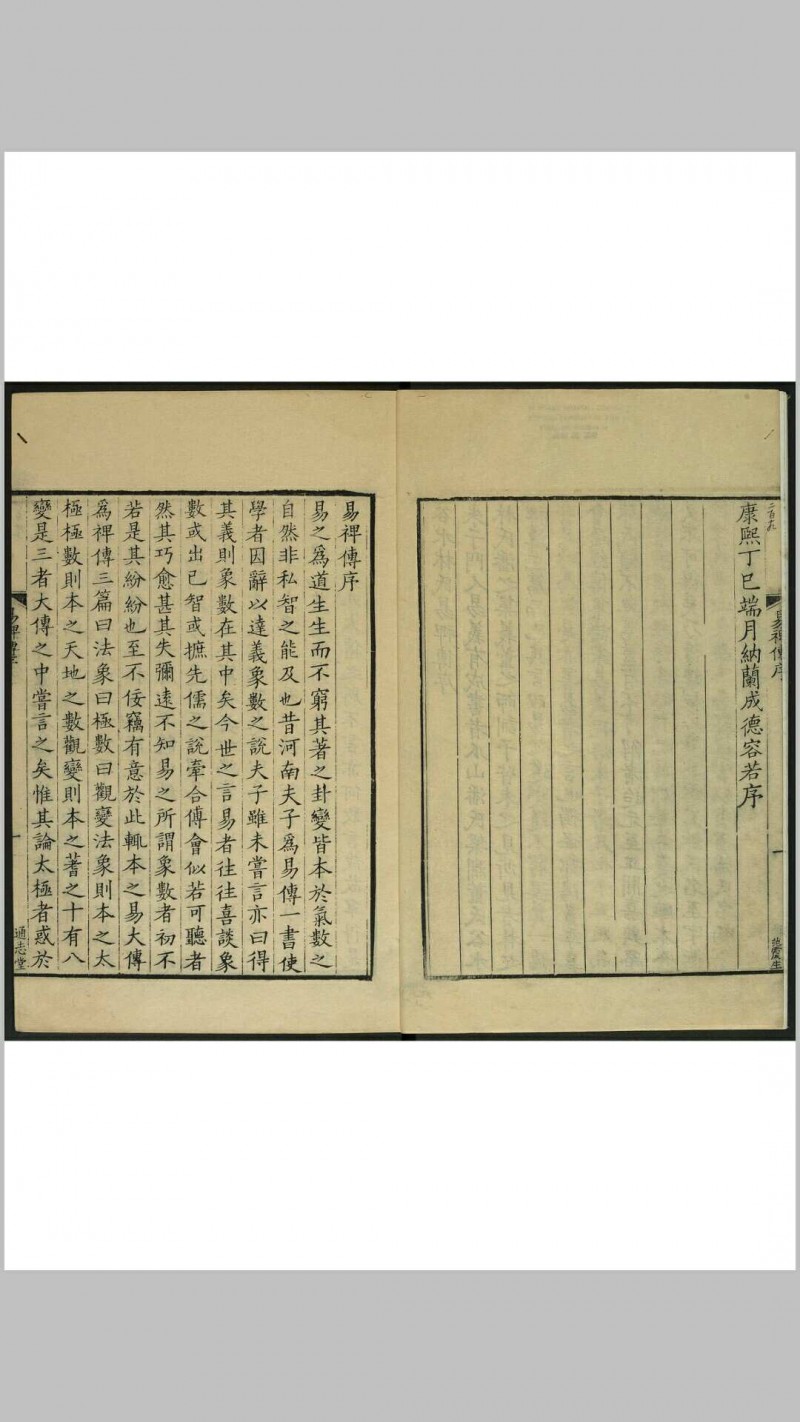 康熙丁巳端月納蘭成德容若序
易裨傳序
一
易裨傳序
易之爲道生生而不窮其著之卦變皆本於氣數之
自然非私智之能及也昔河南夫子爲易傳一書使
學者因辭以達義象數之說夫子雖未嘗言亦曰得
其義則象數在其中矣今世之言易者往往喜談象
數或出已智或摭先儒之說牽合傅會似若可聽者
然其巧愈甚其失彌逺不知易之所謂象數者初不
若是其紛紛也至不佞竊有意於此輒本之易大傳
爲裨傳三篇曰法象曰極數曰觀變法象則本之太
極極數則本之天地之數觀變則本之蓍之十有八
變是三者大傳之中嘗言之矣惟其論太極者惑於
一
通志堂